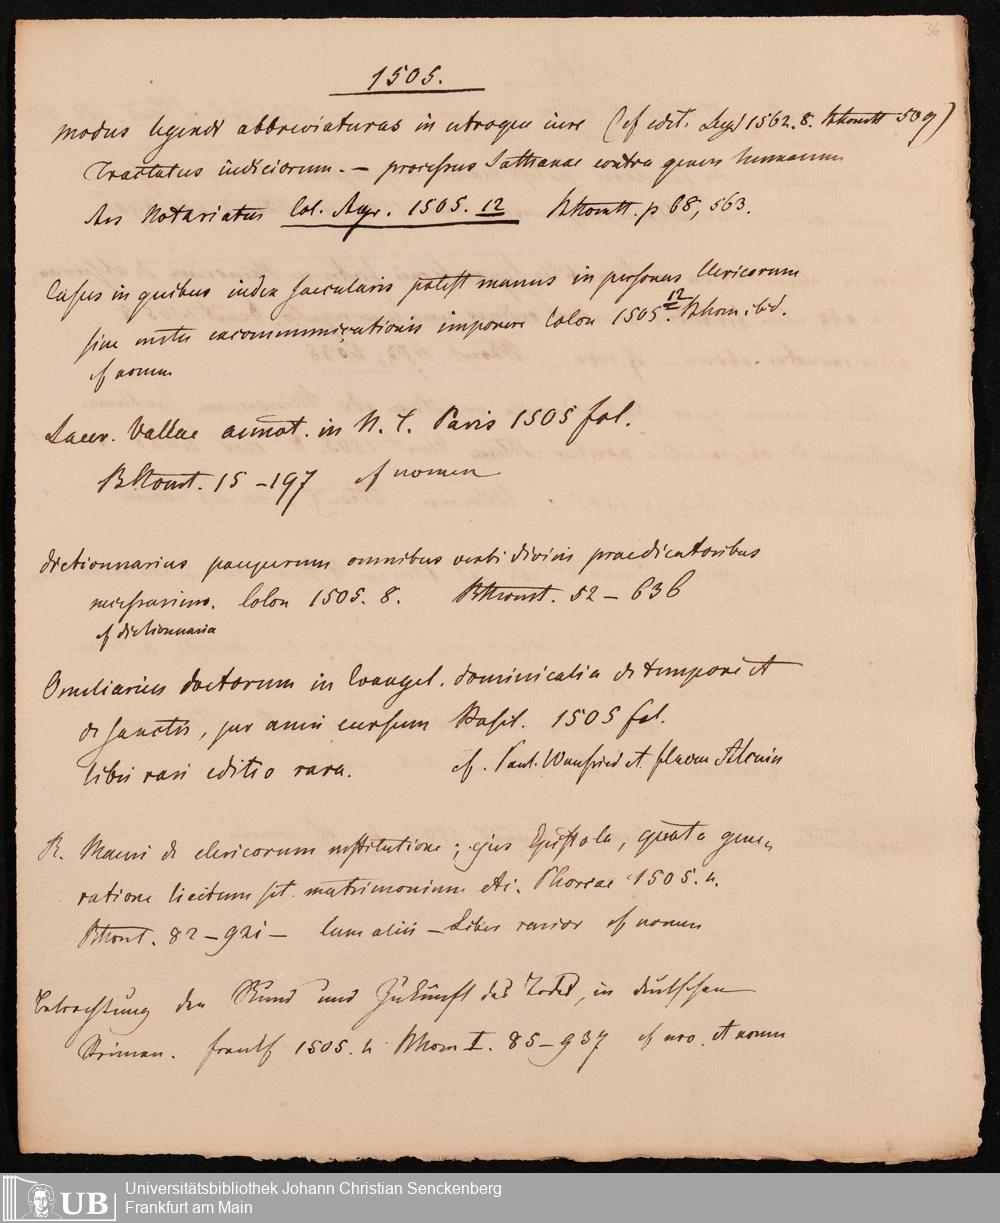 36
1505.
Modus legendi abbreviaturas in utroque iure (cf edit. 1562. 8. 509)
Tractatus iudiciorum. – processus Sathanae contra genus humanum
Ars Notariatus Col. Agr. 1505. 12 p 68, 563.
Casus in quibus iudex saecularis potest manus in personas clericorum
sine metu excommunicationis imponere Colon 1505. 12 ibid.
cf nomen
Laur. Vallae annot. in N. T. Paris 1505 fol.
15 – 197 cf nomen
dictionnarius pauperum omnibus verbi divini praedicatoribus
necessarius. Colon 1505. 8. 52 – 636
cf dictionnaria
Omeliarius doctorum in Evangel. dominicalia de tempore et
de sanctis, per anni cursum Basil. 1505 fol.
libri rari editio rara. cf. Paul. Wanfried et Alcuin
R. Mauri de clericorum institutione; ejus Epistola, quota gene„
ratione licitum sit matrimonium etc. Phorcae 1505. 4.
82 – 921 – cum aliis – Liber rarior cf nomen
Betrachtung der Stund und Zukunft des Todes, in deutschen
Reimen. Frankf 1505. 4 I. 85 – 937 cf et nomen
UB
Universitätsbibliothek Johann Christian Senckenberg
Frankfurt am Main